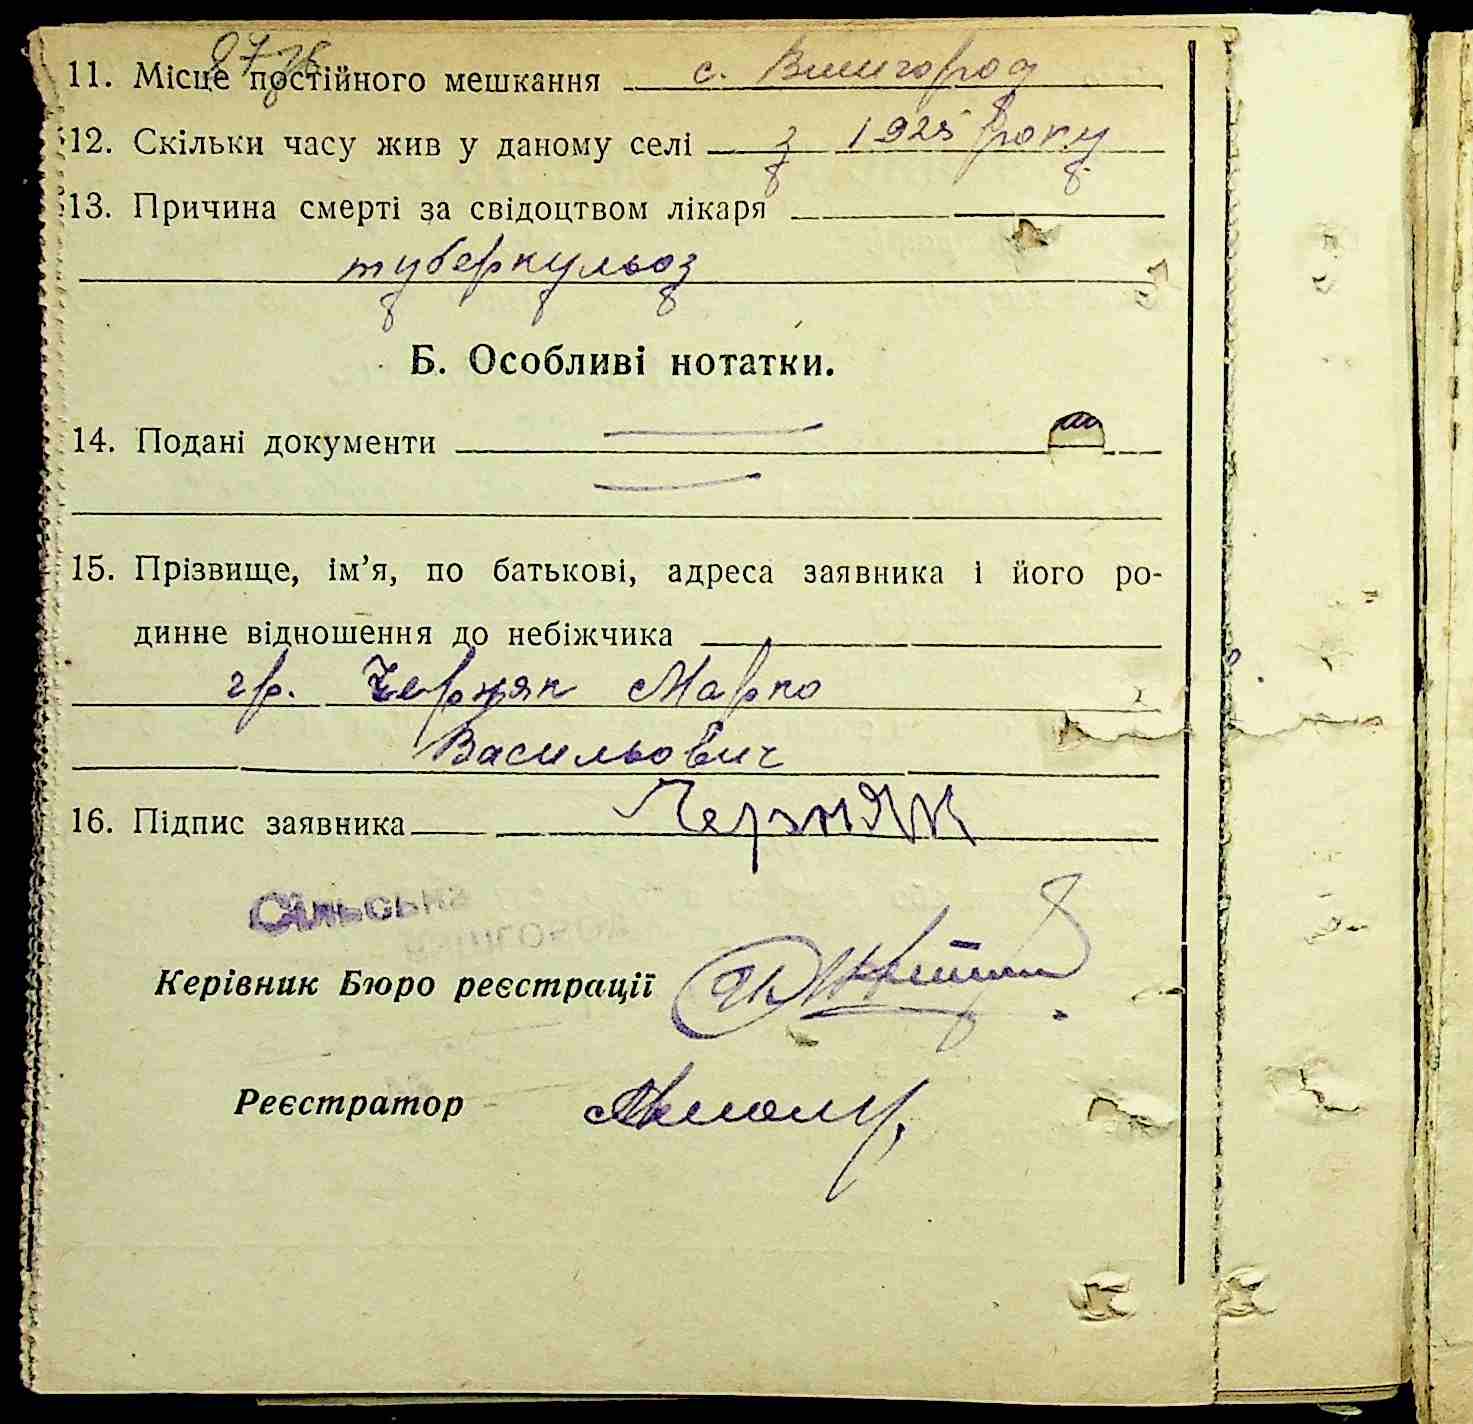 11. Місце постійного мешкання с. Вишгород
12. Скільки часу жив у даному селі з 1925 року
13. Причина смерті за свідоцтвом лікаря
туберкульоз
Б. Особливі нотатки.
14. Подані документи
15. Прізвище, ім’я, по батькові, адреса заявника і його ро-
динне відношення до небіжчика
гр. Черняк Марко
Васильович
16. Підпис заявника Черняк
Сільська
Керівник Бюро реєстрації
Реєстратор